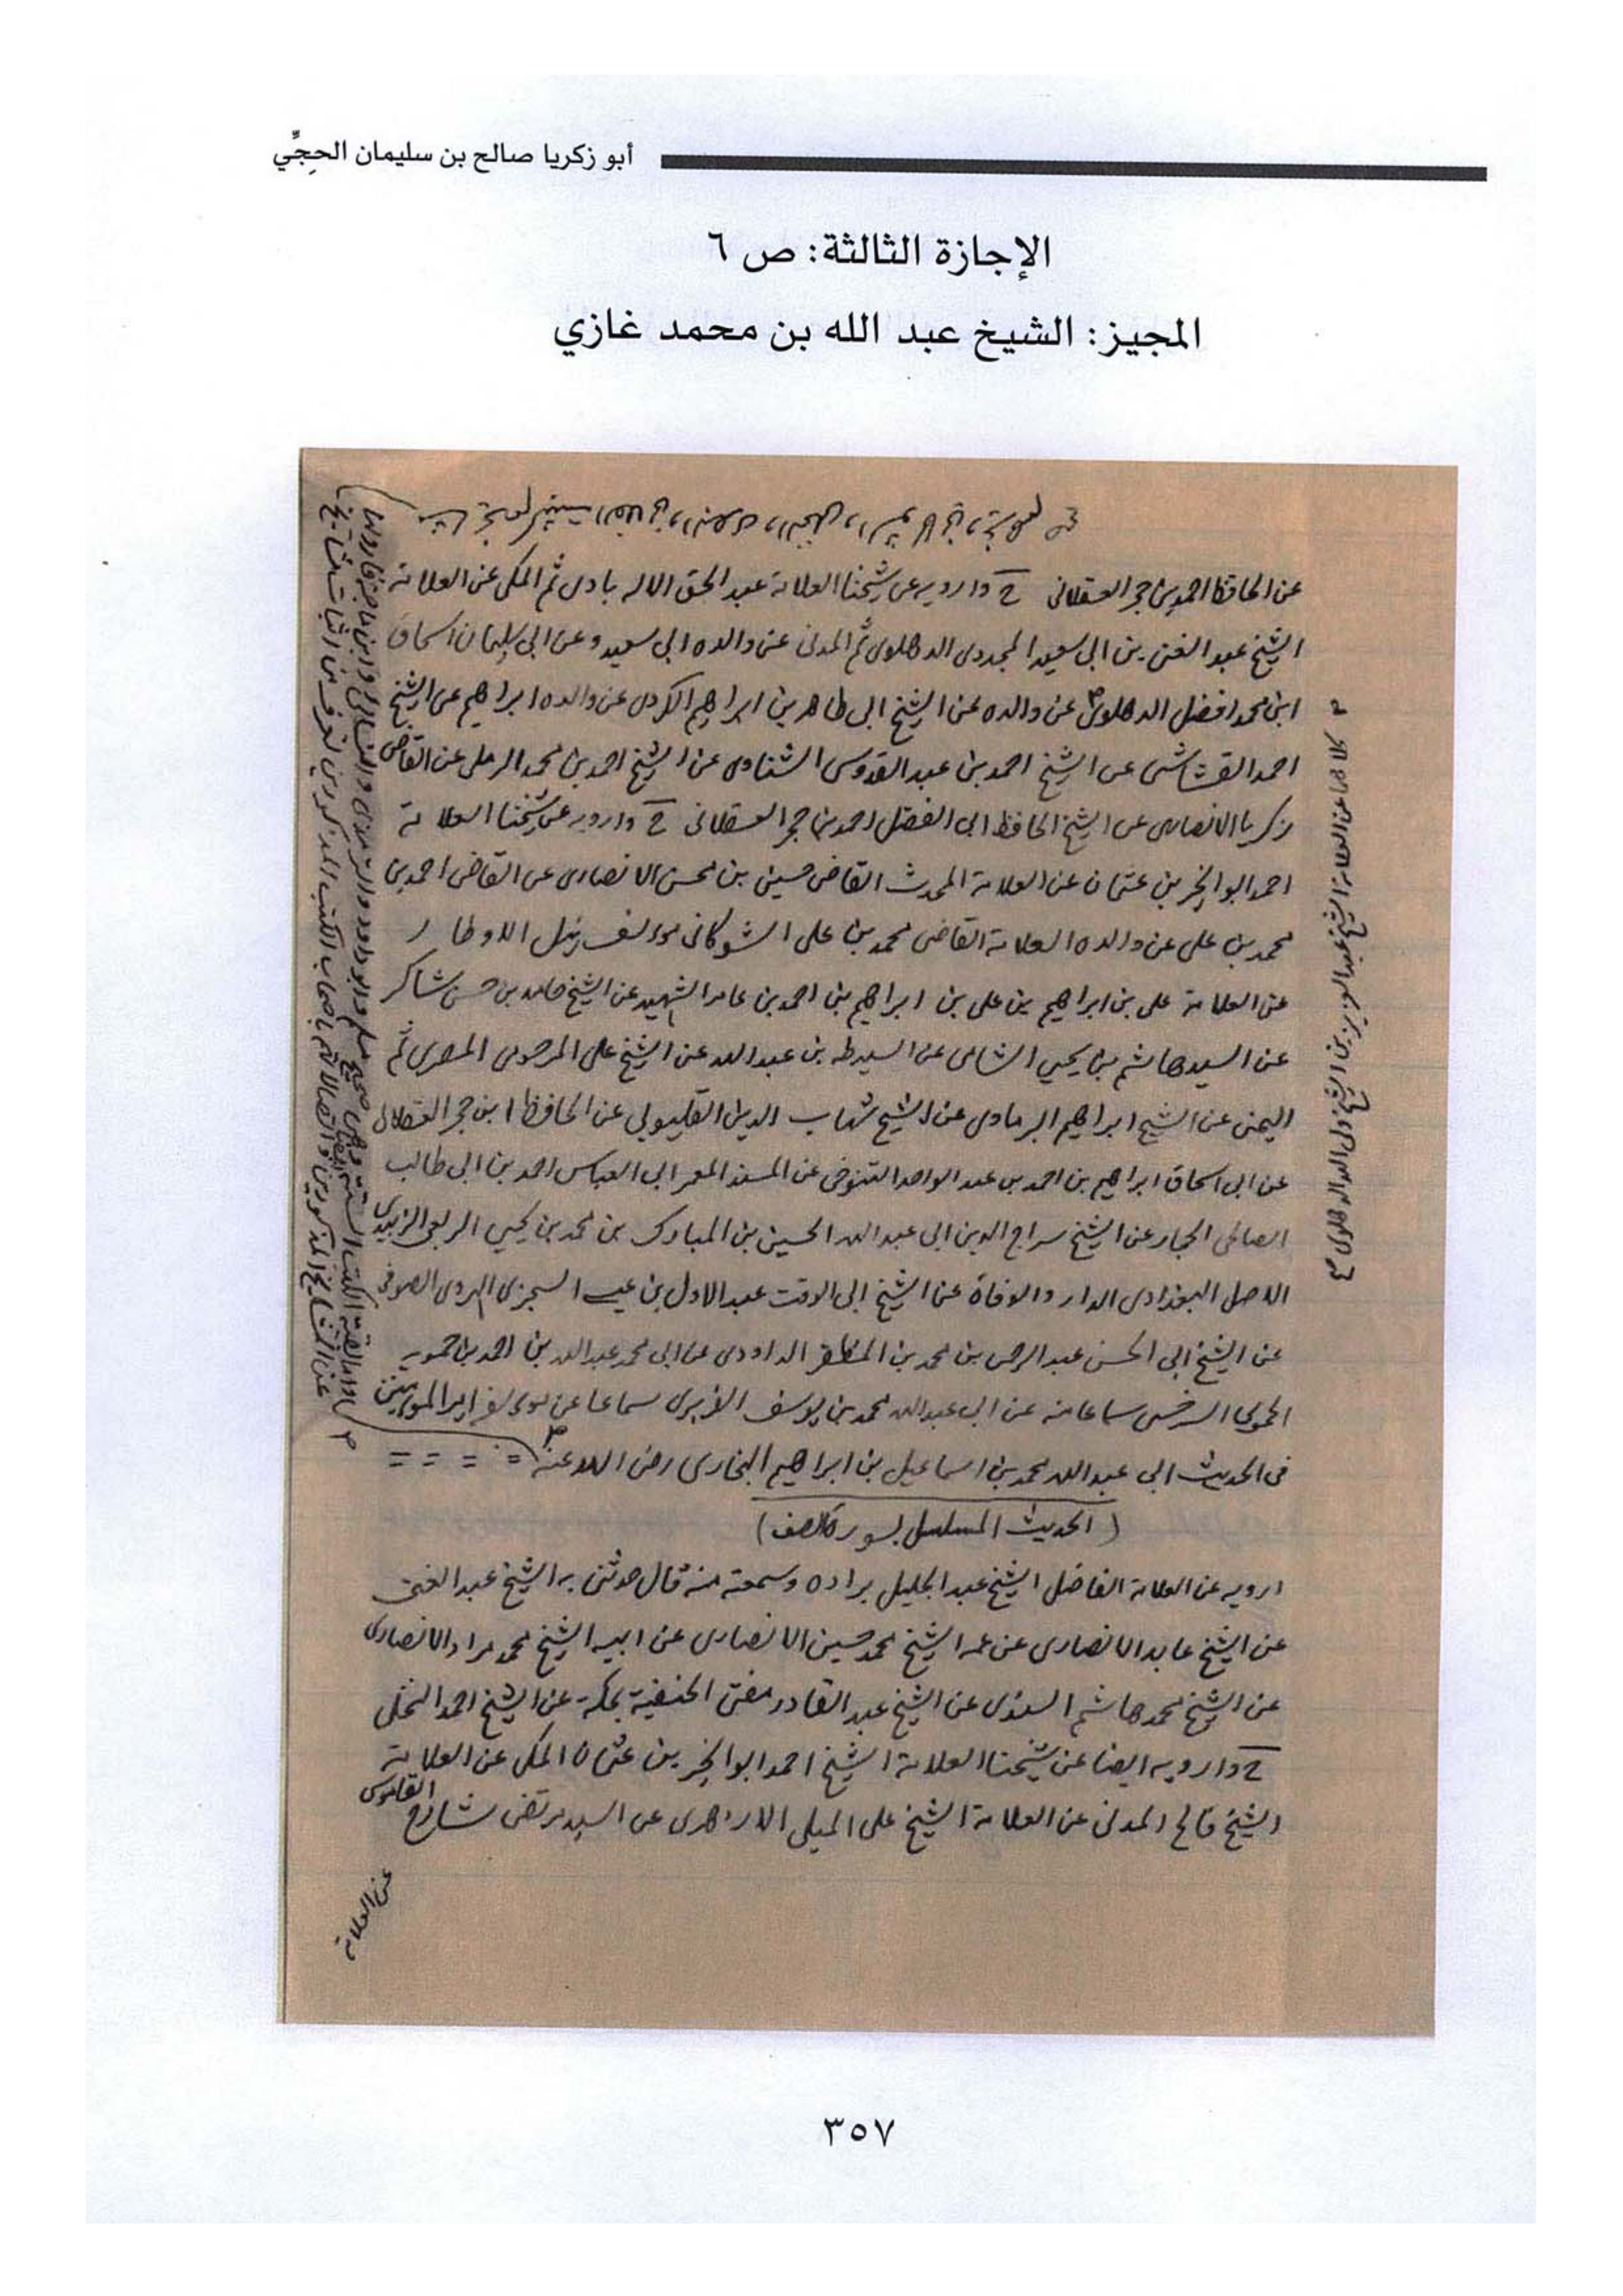 أبو زكريا صالح بن سليمان الحِجِّي
الإجازة الثالثة: ص ٦
المجيز: الشيخ عبد الله بن محمد غازي
عن الحافظ احمد بن حجر العسقلانى ح وارويه عن شيخنا العلامة عبد الحق الاله بادى ثم المكى عن العلامة
الشيخ عبد الغنى بن ابى سعيد المجددى الدهلوى ثم المدنى عن والده ابى سعيد وعن ابى سليمان اسحاق
ابن محمد افضل الدهلوى عن والده عن الشيخ ابى طاهر بن ابراهيم الكردى عن والده ابراهيم عن الشيخ
احمد القشاشى عن الشيخ احمد بن عبد القدوس الشناوى عن الشيخ احمد بن محمد الرملى عن القاضى
زكريا الانصارى عن الشيخ الحافظ ابى الفضل احمد بن حجر العسقلانى ح وارويه عن شيخنا العلامة
احمد ابو الخير بن عثمان عن العلامة المحدث القاضى حسين بن محسن الانصارى عن القاضى احمد بن
محمد بن على عن والده العلامة القاضى محمد بن على الشوكانى مؤلف نيل الاوطار
عن العلامة على بن ابراهيم بن على بن ابراهيم بن احمد بن عامر الشهيد عن الشيخ حامد بن حسن شاكر
عن السيد هاشم بن يحيى الشامى عن السيد طه بن عبد الله عن الشيخ على المرحومى المصرى ثم
اليمنى عن الشيخ ابراهيم البرماوى عن الشيخ شهاب الدين القليوبى عن الحافظ ابن حجر العسقلانى
عن ابى اسحاق ابراهيم بن احمد بن عبد الواحد التنوخى عن المسند المعمر ابى العباس احمد بن ابى طالب
الصالحى الحجار عن الشيخ سراج الدين ابى عبد الله الحسين بن المبارك بن محمد بن يحيى الربعى الزبيدى
الاصل البغدادى الدار والوفاة عن الشيخ ابى الوقت عبد الاول بن عيسى السجزى الهروى الصوفى
عن الشيخ ابى الحسن عبد الرحمن بن محمد بن المظفر الداودى عن ابى محمد عبد الله بن احمد بن حمويه
الحموى السرخسى سماعا منه عن ابى عبد الله محمد بن يوسف الفربرى سماعا عن مؤلفه امير المومنين
فى الحديث ابى عبد الله محمد بن اسماعيل بن ابراهيم البخارى رضى الله عنه
(الحديث المسلسل بسورة الصف)
ارويه عن العلامة الفاضل الشيخ عبد الجليل براده وسمعته منه قال حدثنى به الشيخ عبد الغنى
عن الشيخ عابد الانصارى عن عمه الشيخ محمد حسين الانصارى عن ابيه الشيخ محمد مراد الانصارى
عن الشيخ محمد هاشم السندى عن الشيخ عبد القادر مفتى الحنفية بمكة عن الشيخ احمد النخلى
ح وارويه ايضا عن شيخنا العلامة الشيخ احمد ابو الخير بن عثمان المكى عن العلامة
الشيخ فالح المدنى عن العلامة الشيخ على الميلى الازهرى عن السيد مرتضى شارح القاموس
عن العلامة
٣٥٧